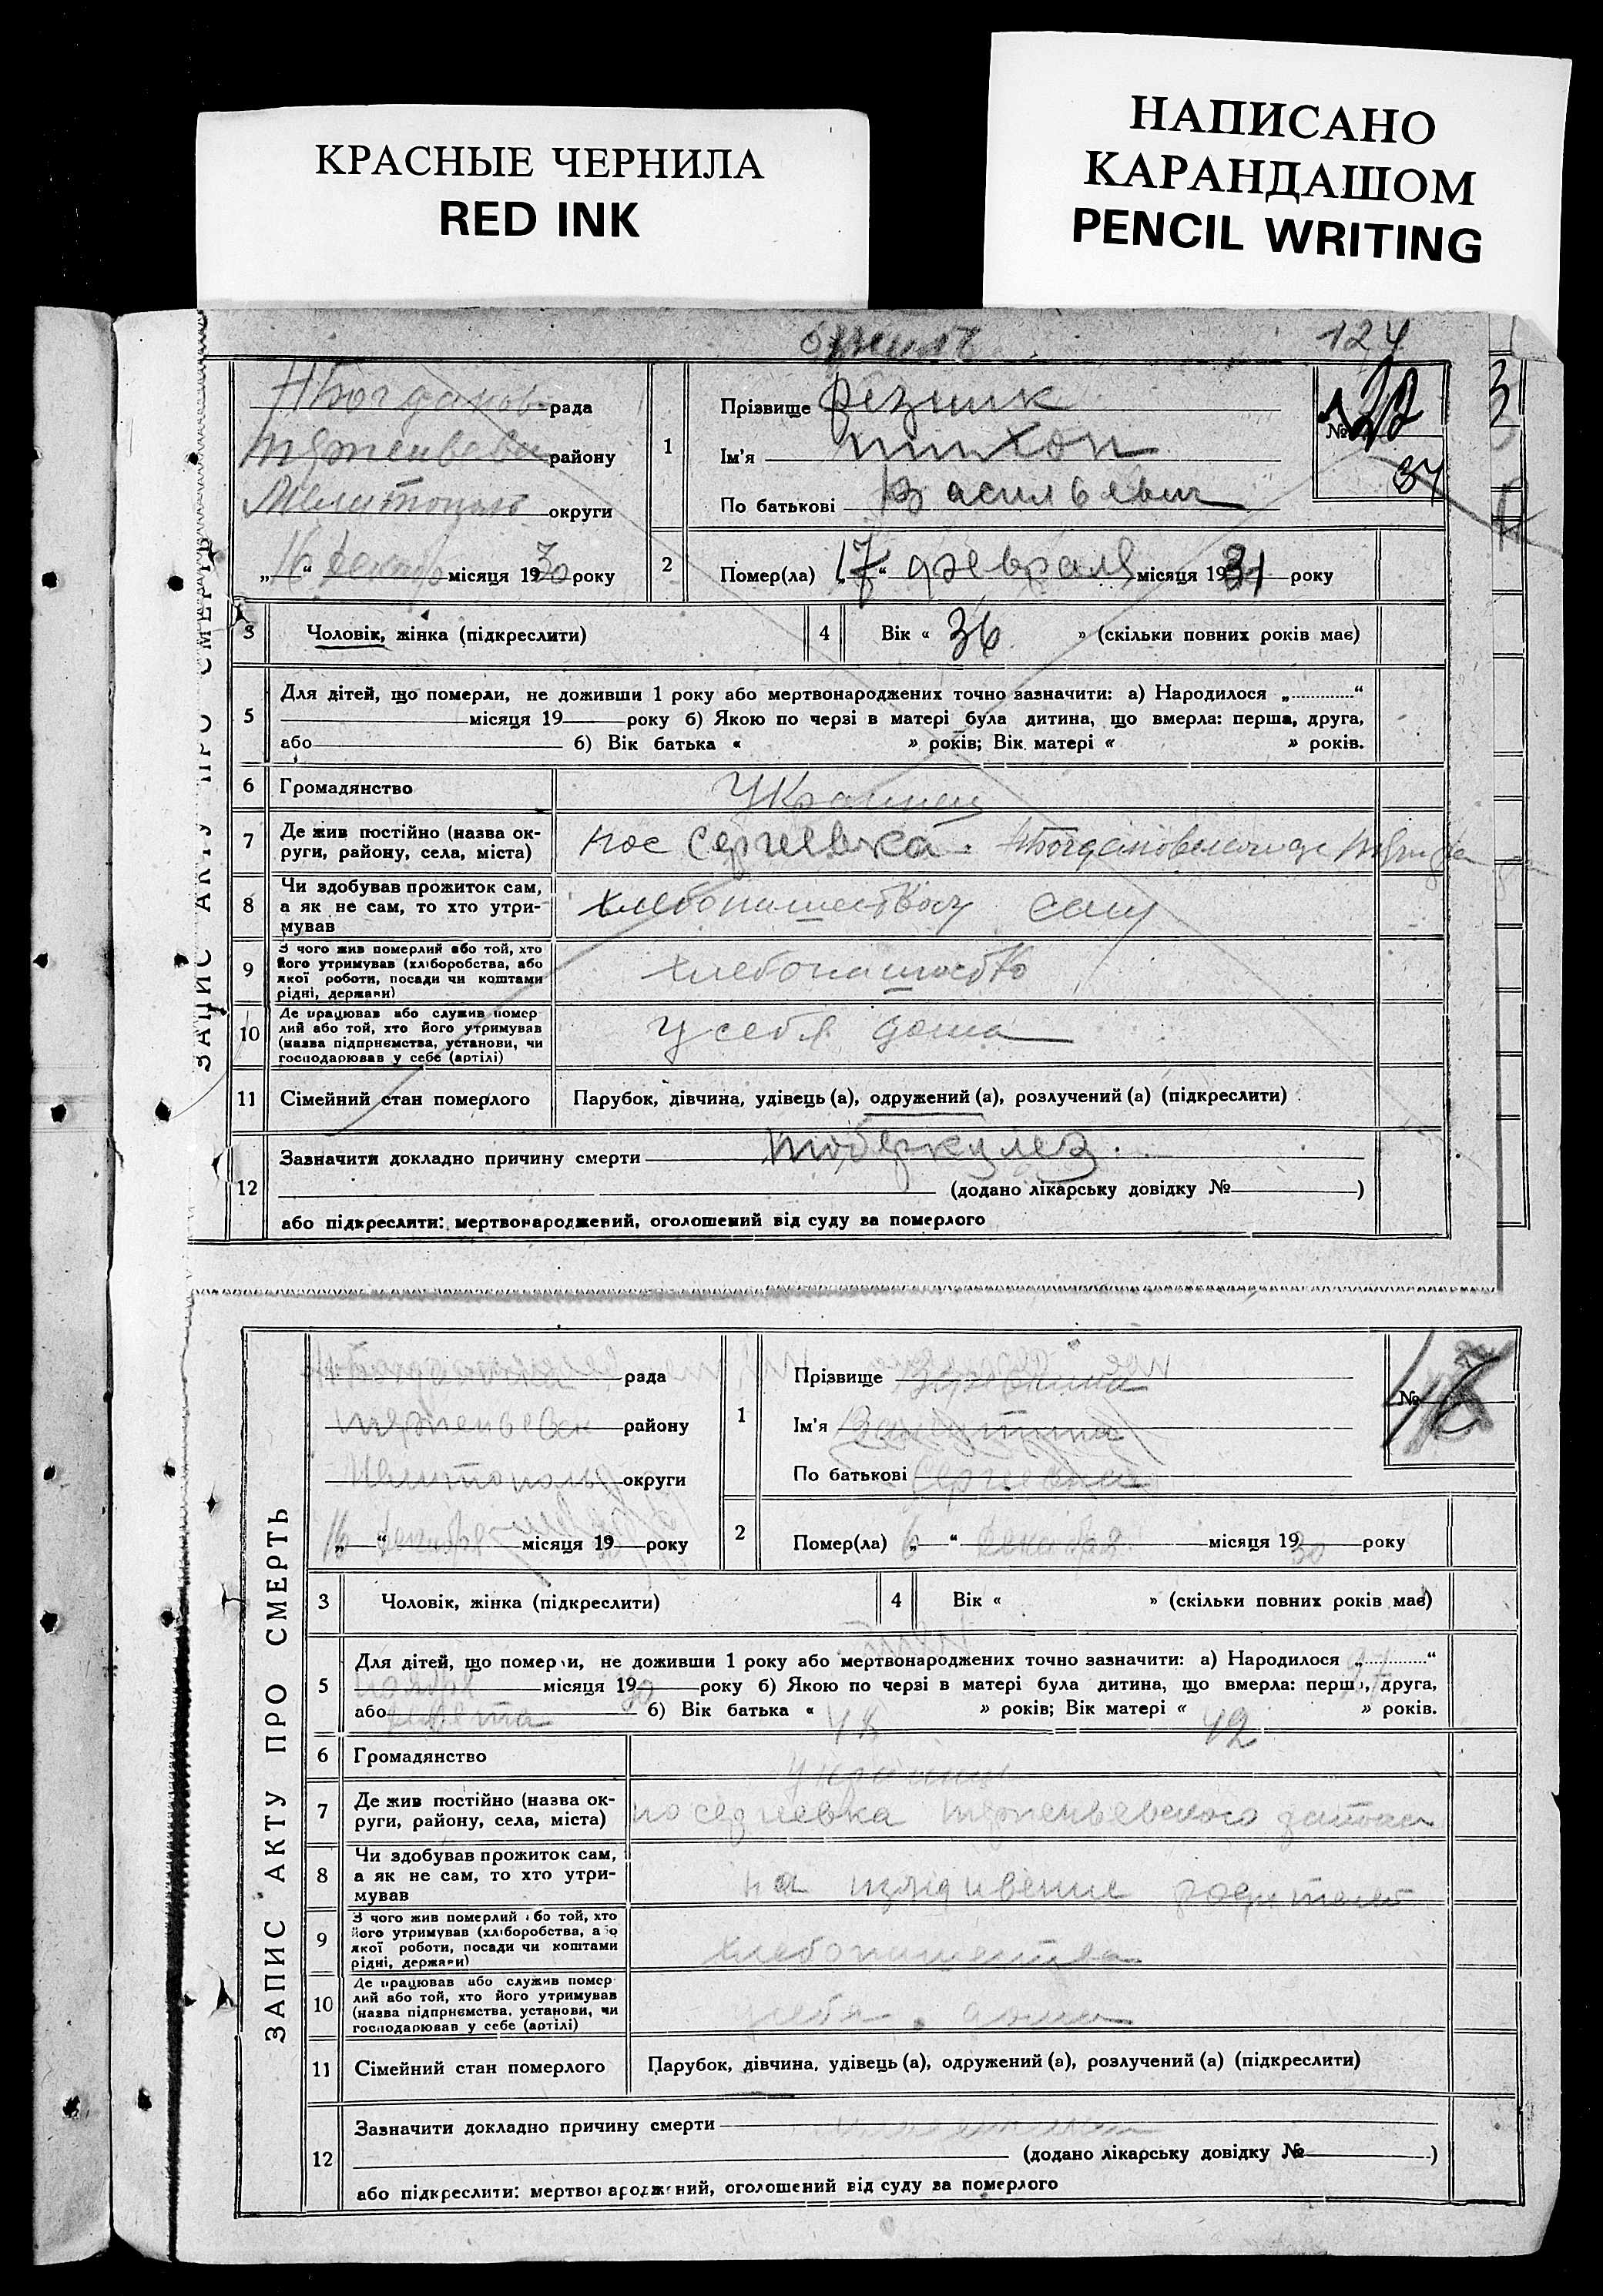 КРАСНЫЕ ЧЕРНИЛА
RED INK
НАПИСАНО
КАРАНДАШОМ
PENCIL WRITING
124
ЗАПИС АКТУ ПРО СМЕРТЬ
НБогданов рада
району
Мелитополь округи
„16“ декабр місяця 1930 року
1
Прізвище Резник
Ім'я тихон
По батькові Васильевич
№
37
2
Помер(ла) „17“ февраля місяця 1931 року
3
Чоловік, жінка (підкреслити)
4
Вік « 36 » (скільки повних років має)
5
Для дітей, що померли, не доживши 1 року або мертвонароджених точно зазначити: а) Народилося „ “
місяця 19 року б) Якою по черзі в матері була дитина, що вмерла: перша, друга,
або б) Вік батька « » років; Вік матері « » років.
6
Громадянство
Украинец
7
Де жив постійно (назва ок-
руги, району, села, міста)
пос Сергиевка
8
Чи здобував прожиток сам,
а як не сам, то хто утри-
мував
хлебопашеством сам
9
З чого жив померлий або той, хто
його утримував (хліборобства, або
якої роботи, посади чи коштами
рідні, держави)
хлебопашество
10
Де працював або служив помер
лий або той, хто його утримував
(назва підприємства, установи, чи
господарював у себе (артілі)
у себя дома
11
Сімейний стан померлого
Парубок, дівчина, удівець (а), одружений (а), розлучений (а) (підкреслити)
12
Зазначити докладно причину смерти тоберкулез
(додано лікарську довідку № )
або підкреслити: мертвонароджений, оголошений від суду за померлого
ЗАПИС АКТУ ПРО СМЕРТЬ
рада
району
Мелитополь округи
„16“ декабря місяця 19 року
1
Прізвище
Ім'я
По батькові Сергиевна
№ 16
2
Помер(ла) „6“ декабря місяця 1930 року
3
Чоловік, жінка (підкреслити)
4
Вік « » (скільки повних років має)
5
Для дітей, що померли, не доживши 1 року або мертвонароджених точно зазначити: а) Народилося „27“
ноября місяця 1930 року б) Якою по черзі в матері була дитина, що вмерла: перша, друга,
або б) Вік батька « » років; Вік матері « 42 » років.
6
Громадянство
7
Де жив постійно (назва ок-
руги, району, села, міста)
пос Сергиевка
8
Чи здобував прожиток сам,
а як не сам, то хто утри-
мував
на иждивение родителей
9
З чого жив померлий або той, хто
його утримував (хліборобства, або
якої роботи, посади чи коштами
рідні, держави)
хлебопашества
10
Де працював або служив помер
лий або той, хто його утримував
(назва підприємства, установи, чи
господарював у себе (артілі)
у себя дома
11
Сімейний стан померлого
Парубок, дівчина, удівець (а), одружений (а), розлучений (а) (підкреслити)
12
Зазначити докладно причину смерти
(додано лікарську довідку № )
або підкреслити: мертвонароджений, оголошений від суду за померлого